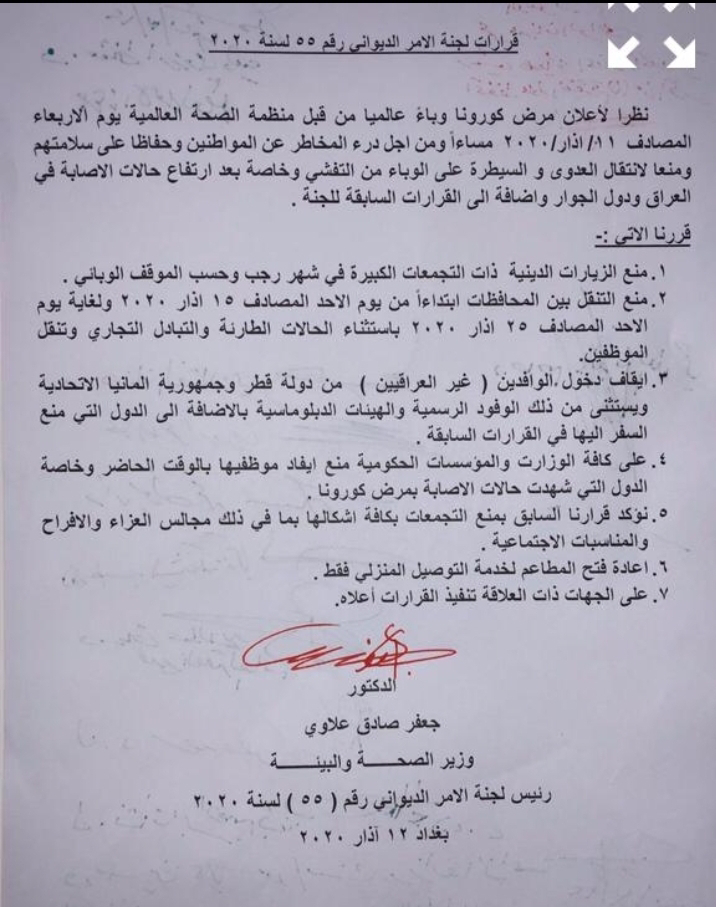 قرارات لجنة الامر الديواني رقم ٥٥ لسنة ٢٠٢٠
نظرا لأعلان مرض كورونا وباءً عالميا من قبل منظمة الصحة العالمية يوم الاربعاء
المصادف ١١/ اذار/٢٠٢٠ مساءاً ومن اجل درء المخاطر عن المواطنين وحفاظا على سلامتهم
ومنعا لانتقال العدوى و السيطرة على الوباء من التفشي وخاصة بعد ارتفاع حالات الاصابة في
العراق ودول الجوار واضافة الى القرارات السابقة للجنة .
قررنا الاتي :-
١. منع الزيارات الدينية ذات التجمعات الكبيرة في شهر رجب وحسب الموقف الوبائي .
٢. منع التنقل بين المحافظات ابتداءاً من يوم الاحد المصادف ١٥ اذار ٢٠٢٠ ولغاية يوم
الاحد المصادف ٢٥ اذار ٢٠٢٠ باستثناء الحالات الطارئة والتبادل التجاري وتنقل
الموظفين.
٣. ايقاف دخول الوافدين ( غير العراقيين ) من دولة قطر وجمهورية المانيا الاتحادية
ويستثنى من ذلك الوفود الرسمية والهيئات الدبلوماسية بالاضافة الى الدول التي منع
السفر اليها في القرارات السابقة .
٤. على كافة الوزارت والمؤسسات الحكومية منع ايفاد موظفيها بالوقت الحاضر وخاصة
الدول التي شهدت حالات الاصابة بمرض كورونا .
٥. نؤكد قرارنا السابق بمنع التجمعات بكافة اشكالها بما في ذلك مجالس العزاء والافراح
والمناسبات الاجتماعية .
٦. اعادة فتح المطاعم لخدمة التوصيل المنزلي فقط .
٧. على الجهات ذات العلاقة تنفيذ القرارات أعلاه.
الدكتور
جعفر صادق علاوي
وزير الصحــــة والبيئــــــة
رئيس لجنة الامر الديواني رقم ( ٥٥ ) لسنة ٢٠٢٠
بغداد ١٢ آذار ٢٠٢٠